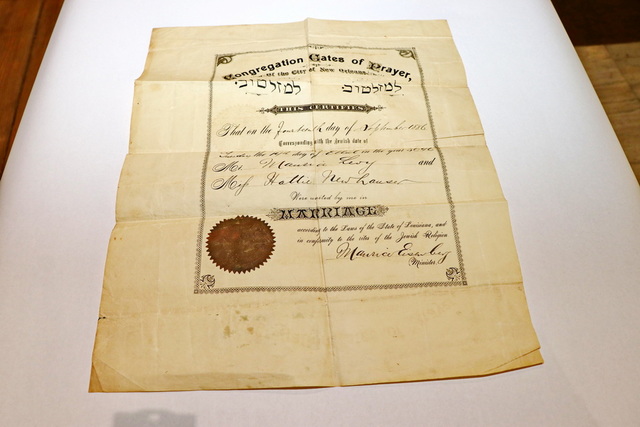 Congregation Gates of Prayer,
Of the City of New Orleans.
למזל טוב׃ למזל טוב׃
THIS CERTIFIES
That on the Fourteenth day of September 1886
Corresponding with the Jewish date of
day of in the year
Mr Maurice Levy and
Miss Hattie Newhauser
Were united by me in
MARRIAGE
according to the Laws of the State of Louisiana, and
in conformity to the rites of the Jewish Religion
Maurice Eisenberg
Minister.